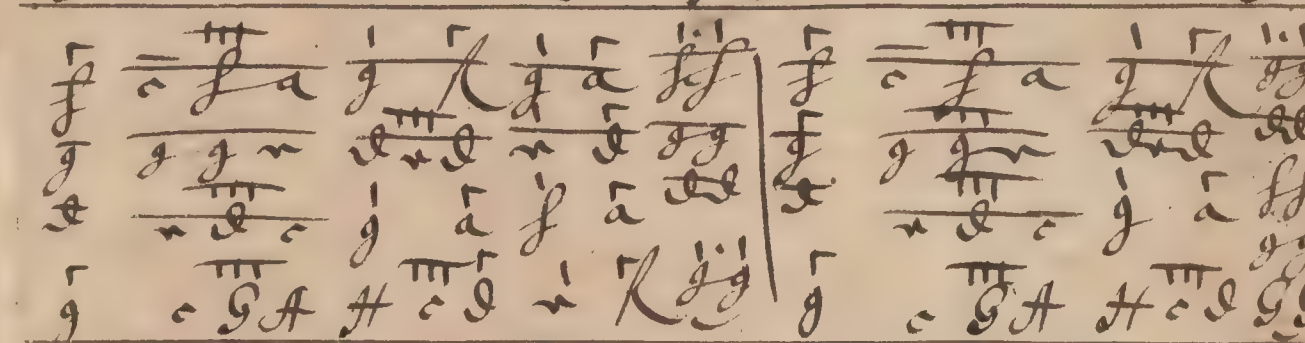 f c f a g R g a f f f c f a g R g g
g g g n d n d n d g g g g g n d n d d d
d n d c g a f a d d d n d c g a f f
g g
g c G A H c d n R g g g c G A H c d G G